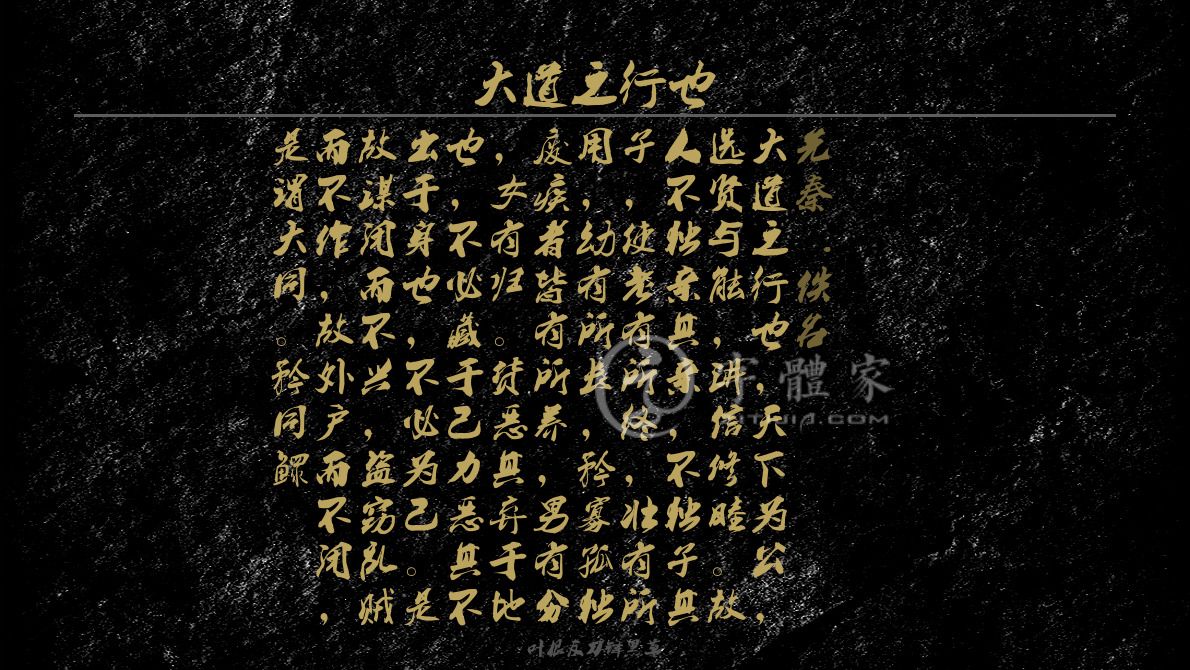 大道之行也
先秦·佚名
大道之行也，天下为公，
选贤与能，讲信修睦。故
人不独亲其亲，不独子其
子，使老有所终，壮有所
用，幼有所长，矜寡孤独
废疾者皆有所养，男有分
，女有归。货恶其弃于地
也，不必藏于己力恶其不
出于身也，不必为己。是
故谋闭而不兴，盗窃乱贼
而不作，故外户而不闭，
是谓大同。矜同鳏
字體家
ZITIJIA.COM
叶根友刀锋黑草